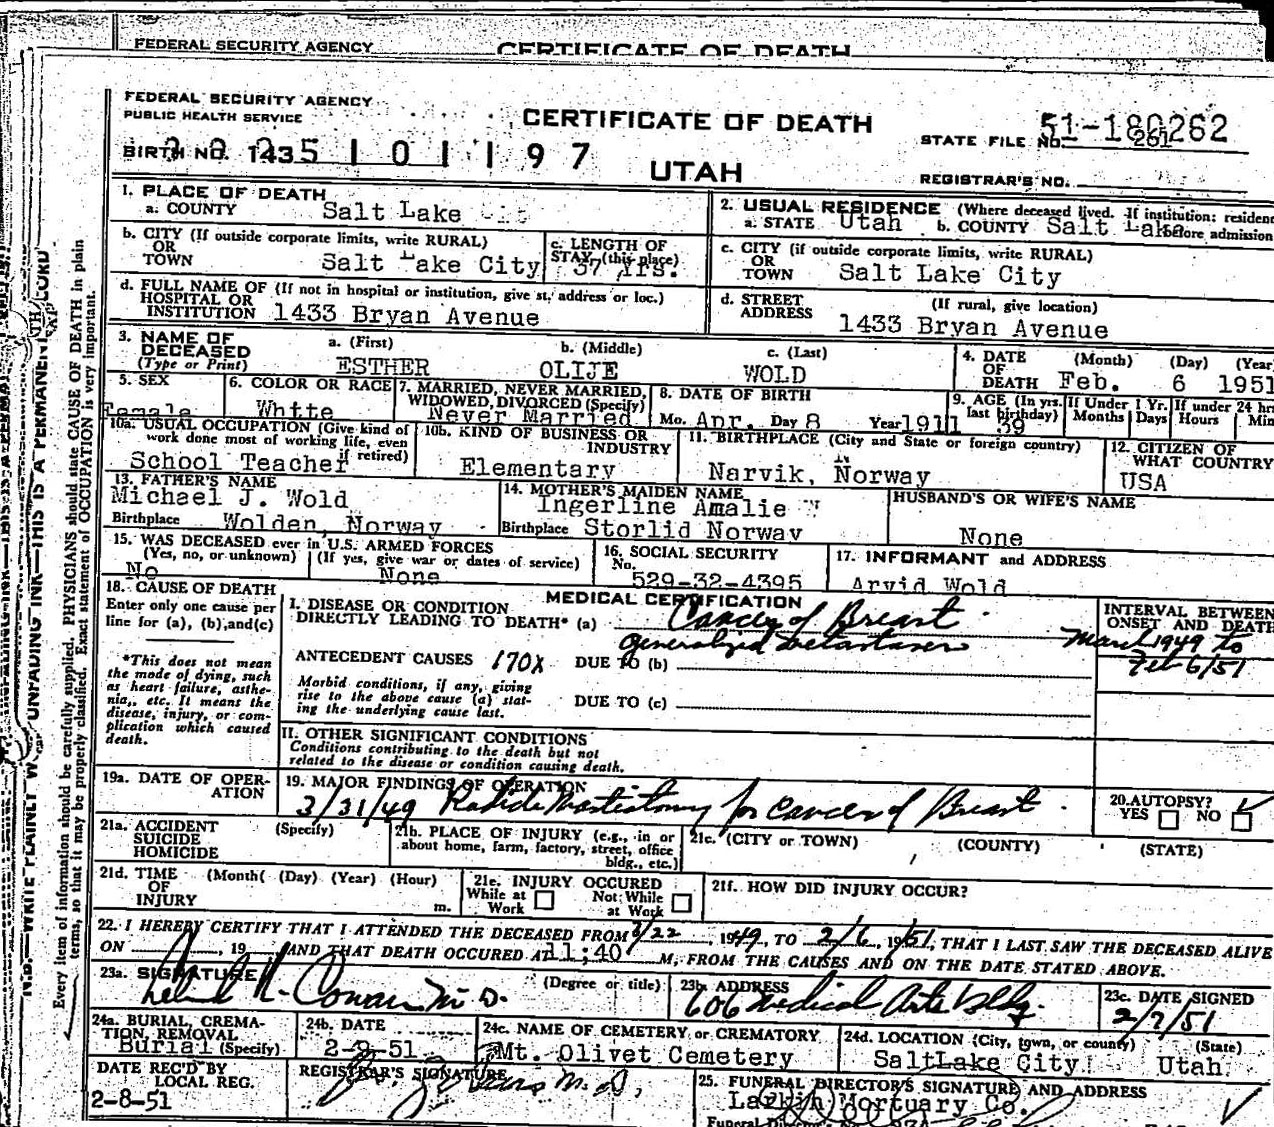 FEDERAL SECURITY AGENCY CERTIFICATE OF DEATH
FEDERAL SECURITY AGENCY
PUBLIC HEALTH SERVICE
CERTIFICATE OF DEATH
STATE FILE NO. 51-180262
261
BIRTH NO. 1435 101197
UTAH
REGISTRAR'S NO.
1. PLACE OF DEATH
a. COUNTY Salt Lake
2. USUAL RESIDENCE (Where deceased lived. If institution: residen
a. STATE Utah b. COUNTY Salt Lake before admission
b. CITY (If outside corporate limits, write RURAL)
OR
TOWN Salt Lake City
c. LENGTH OF
STAY (this place)
37 Yrs.
c. CITY (if outside corporate limits, write RURAL)
OR
TOWN Salt Lake City
d. FULL NAME OF (If not in hospital or institution, give st. address or loc.)
HOSPITAL OR
INSTITUTION 1433 Bryan Avenue
d. STREET (If rural, give location)
ADDRESS 1433 Bryan Avenue
3. NAME OF a. (First) b. (Middle) c. (Last)
DECEASED
(Type or Print) ESTHER OLIJE WOLD
4. DATE (Month) (Day) (Year
OF
DEATH Feb. 6 1951
5. SEX
Female
6. COLOR OR RACE
White
7. MARRIED, NEVER MARRIED,
WIDOWED, DIVORCED (Specify)
Never Married
8. DATE OF BIRTH
Mo. Apr. Day 8 Year 1911
9. AGE (In yrs. If Under 1 Yr. If under 24 hr
last birthday) Months Days Hours Min
39
10a. USUAL OCCUPATION (Give kind of
work done most of working life, even
if retired)
School Teacher
10b. KIND OF BUSINESS OR
INDUSTRY
Elementary
11. BIRTHPLACE (City and State or foreign country)
Narvik, Norway
12. CITIZEN OF
WHAT COUNTRY
USA
13. FATHER'S NAME
Michael J. Wold
Birthplace Wolden, Norway
14. MOTHER'S MAIDEN NAME
Ingerline Amalie
Birthplace Storlid Norway
HUSBAND'S OR WIFE'S NAME
None
15. WAS DECEASED ever in U.S. ARMED FORCES
(Yes, no, or unknown) (If yes, give war or dates of service)
No None
16. SOCIAL SECURITY
No.
529-32-4395
17. INFORMANT and ADDRESS
Arvid Wold
MEDICAL CERTIFICATION
18. CAUSE OF DEATH
Enter only one cause per
line for (a), (b), and (c)
*This does not mean
the mode of dying, such
as heart failure, asthe-
nia, etc. It means the
disease, injury, or com-
plication which caused
death.
I. DISEASE OR CONDITION
DIRECTLY LEADING TO DEATH* (a) Cancer of Breast
generalized metastases
ANTECEDENT CAUSES 170X DUE TO (b)
Morbid conditions, if any, giving
rise to the above cause (a) stat-
ing the underlying cause last.
DUE TO (c)
INTERVAL BETWEEN
ONSET AND DEATH
March 1949 to
Feb 6/51
II. OTHER SIGNIFICANT CONDITIONS
Conditions contributing to the death but not
related to the disease or condition causing death.
19a. DATE OF OPER-
ATION
19. MAJOR FINDINGS OF OPERATION
3/31/49 Radical Mastectomy for Cancer of Breast.
20. AUTOPSY?
YES NO
21a. ACCIDENT (Specify)
SUICIDE
HOMICIDE
21b. PLACE OF INJURY (e.g., in or
about home, farm, factory, street, office
bldg., etc.)
21c. (CITY or TOWN) (COUNTY) (STATE)
21d. TIME (Month( (Day) (Year) (Hour)
OF
INJURY m.
21e. INJURY OCCURED
While at Work Not While at Work
21f. HOW DID INJURY OCCUR?
22. I HEREBY CERTIFY THAT I ATTENDED THE DECEASED FROM 3/22, 1949, TO 2/6, 1951, THAT I LAST SAW THE DECEASED ALIVE
ON , 19 AND THAT DEATH OCCURED AT 11;40 M, FROM THE CAUSES AND ON THE DATE STATED ABOVE.
23a. SIGNATURE (Degree or title)
Leland R. Cowan M.D.
23b. ADDRESS
606 Medical Arts Bldg.
23c. DATE SIGNED
2/7/51
24a. BURIAL, CREMA-
TION, REMOVAL
Burial (Specify)
24b. DATE
2-9-51
24c. NAME OF CEMETERY or CREMATORY
Mt. Olivet Cemetery
24d. LOCATION (City, town, or county) (State)
SaltLake City Utah
DATE REC'D BY
LOCAL REG.
2-8-51
REGISTRAR'S SIGNATURE
M.D.
25. FUNERAL DIRECTOR'S SIGNATURE AND ADDRESS
Larkin Mortuary Co.
Every item of information should be carefully supplied. PHYSICIANS should state CAUSE OF DEATH in plain
terms, so that it may be properly classified. Exact statement of OCCUPATION is very important.
N.B.—WRITE PLAINLY W UNFADING INK—THIS IS A PERMANENT RECORD